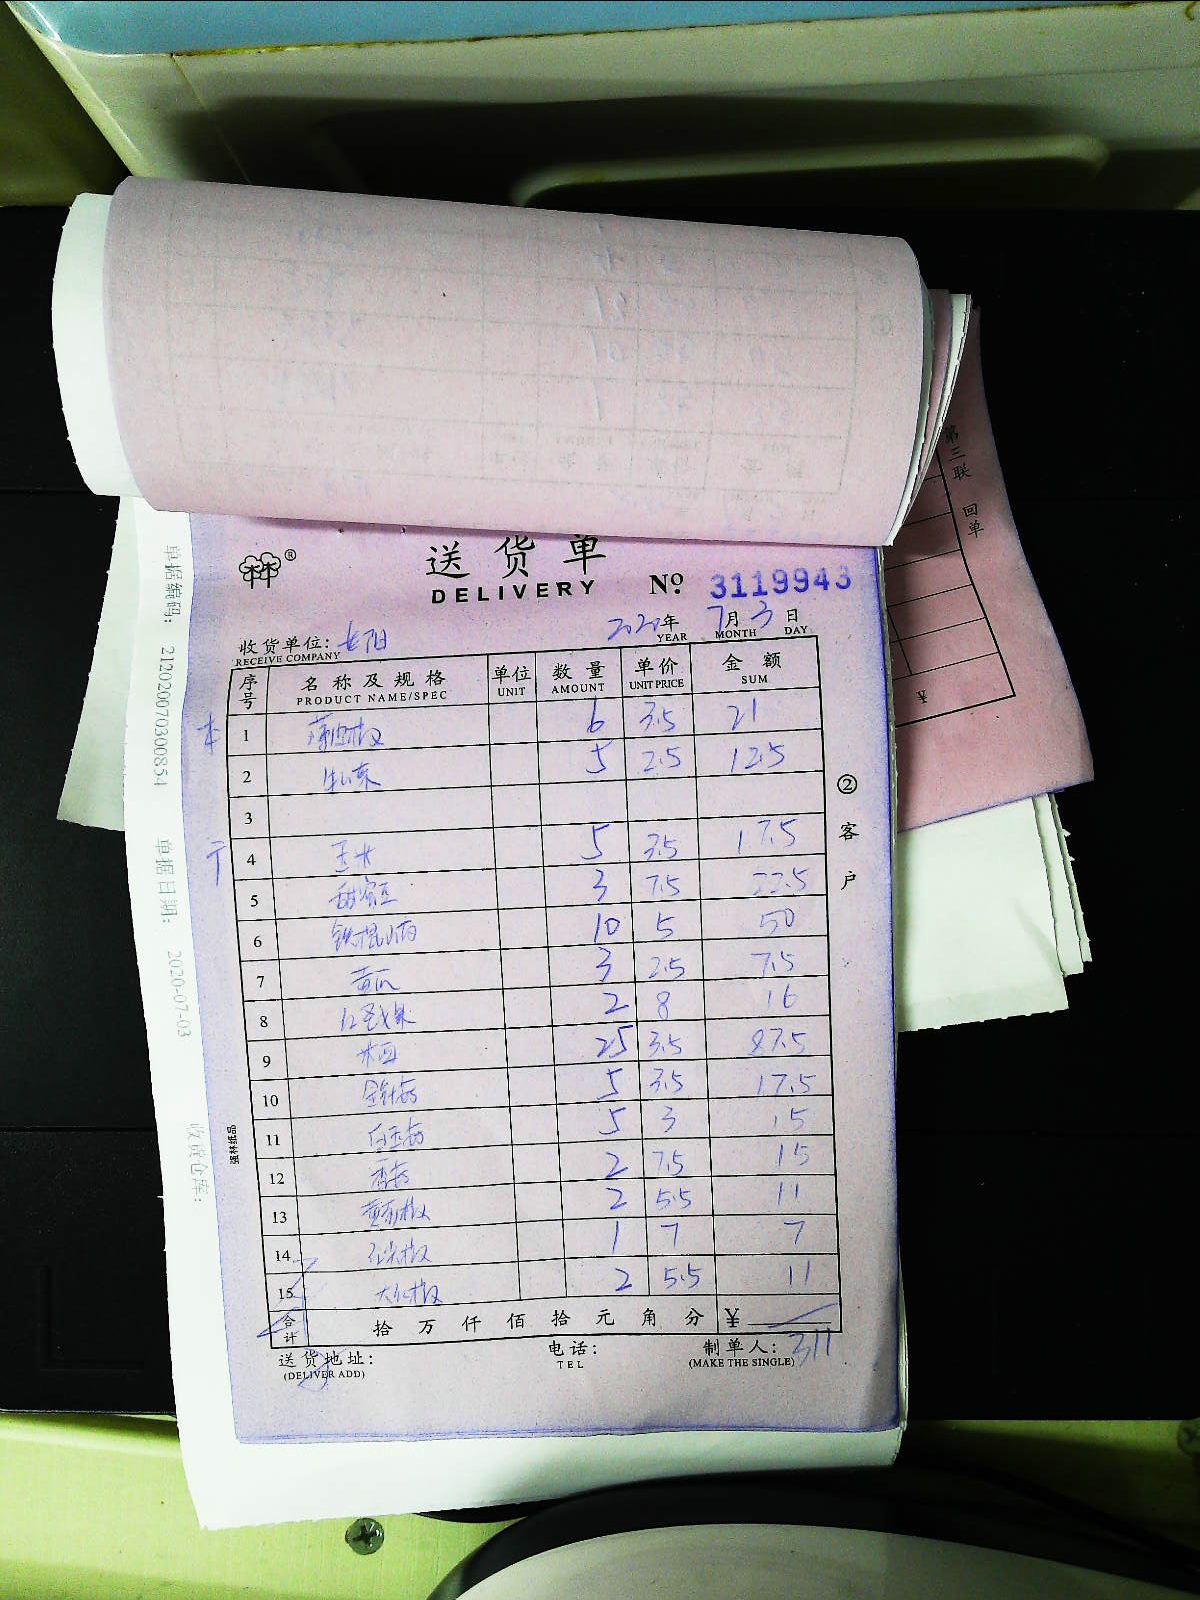 第三联 回单
¥
®
送货单
DELIVERY № 3119943
2020年 7月 3日
YEAR MONTH DAY
收货单位: 长阳
RECEIVE COMPANY
序号 名称及规格 单位 数量 单价 金额
PRODUCT NAME/SPEC UNIT AMOUNT UNIT PRICE SUM
1 6 3.5 21
2 5 2.5 12.5
3
4 玉米 5 3.5 17.5
5 甜蜜豆 3 7.5 22.5
6 铁棍山药 10 5 50
7 黄瓜 3 2.5 7.5
8 2 8 16
9 25 3.5 87.5
10 金针菇 5 3.5 17.5
11 白玉菇 5 3 15
12 香菇 2 7.5 15
13 2 5.5 11
14 1 7 7
15 大红椒 2 5.5 11
合计 拾 万 仟 佰 拾 元 角 分 ¥
311
送货地址: 电话: 制单人:
(DELIVER ADD) TEL (MAKE THE SINGLE)
② 客户
强林纸品
单据编码: 212020070300854 单据日期: 2020-07-03 收货仓库: